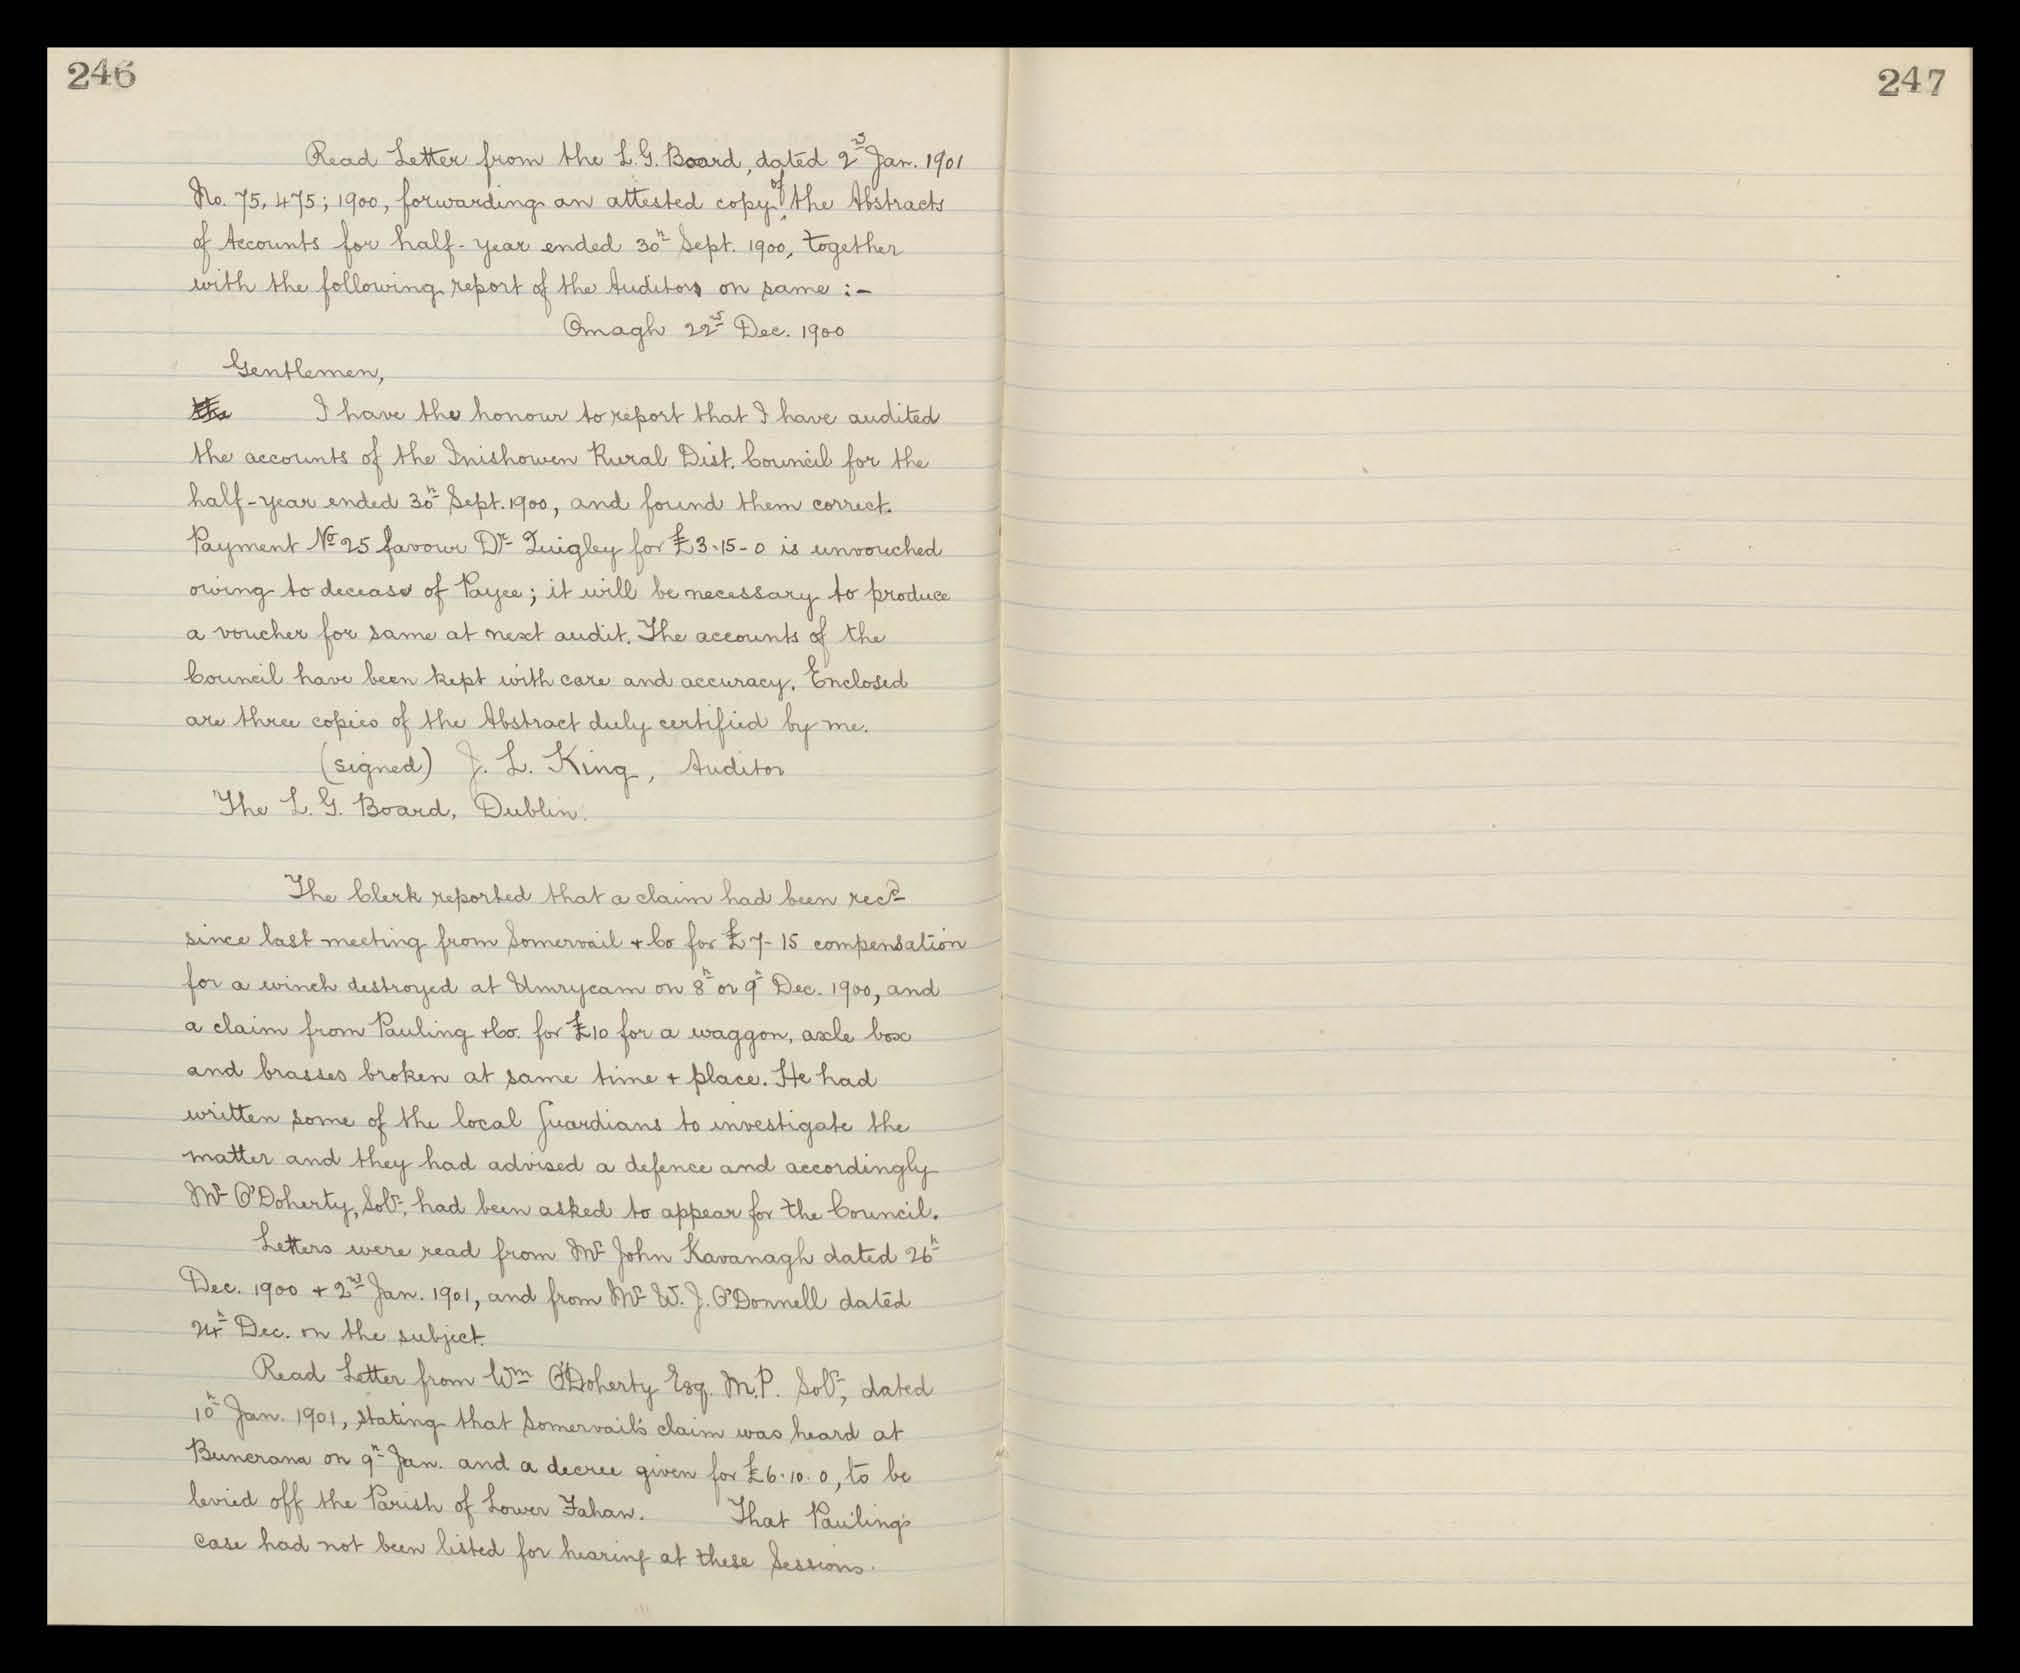 246
Read Letter from the L.G. Board, dated 2nd Jan. 1901
No. 75,475; 1900, forwarding an attested copy of the Abstracts
of Accounts for half-year ended 30th Sept. 1900, together
with the following report of the Auditors on same :-
Omagh 22nd Dec. 1900
Gentlemen,
the I have the honour to report that I have audited
the accounts of the Inishowen Rural Dist. Council for the
half-year ended 30th Sept. 1900, and found them correct.
Payment No 25 favour Dr Quigley for £3-15-0 is unvouched
owing to decease of Payee; it will be necessary to produce
a voucher for same at next audit. The accounts of the
Council have been kept with care and accuracy. Enclosed
are three copies of the Abstract duly certified by me.
(signed) J. L. King, Auditor
The L. G. Board, Dublin.
The Clerk reported that a claim had been recd
since last meeting from Somervail + Co for £7-15 compensation
for a winch destroyed at Umrycam on 8th or 9th Dec. 1900, and
a claim from Pauling + Co. for £10 for a waggon, axle box
and brasses broken at same time + place. He had
written some of the local Guardians to investigate the
matter and they had advised a defence and accordingly
Mr O'Doherty, Solr, had been asked to appear for the Council.
Letters were read from Mr John Kavanagh dated 26th
Dec. 1900 + 2nd Jan. 1901, and from Mr W. J. O'Donnell dated
24th Dec. on the subject.
Read Letter from Wm O'Doherty Esq. M.P. Solr, dated
10th Jan. 1901, stating that Somervail's claim was heard at
Buncrana on 9th Jan. and a decree given for £6.10.0, to be
levied off the Parish of Lower Fahan. That Pauling's
case had not been listed for hearing at these Sessions.
247